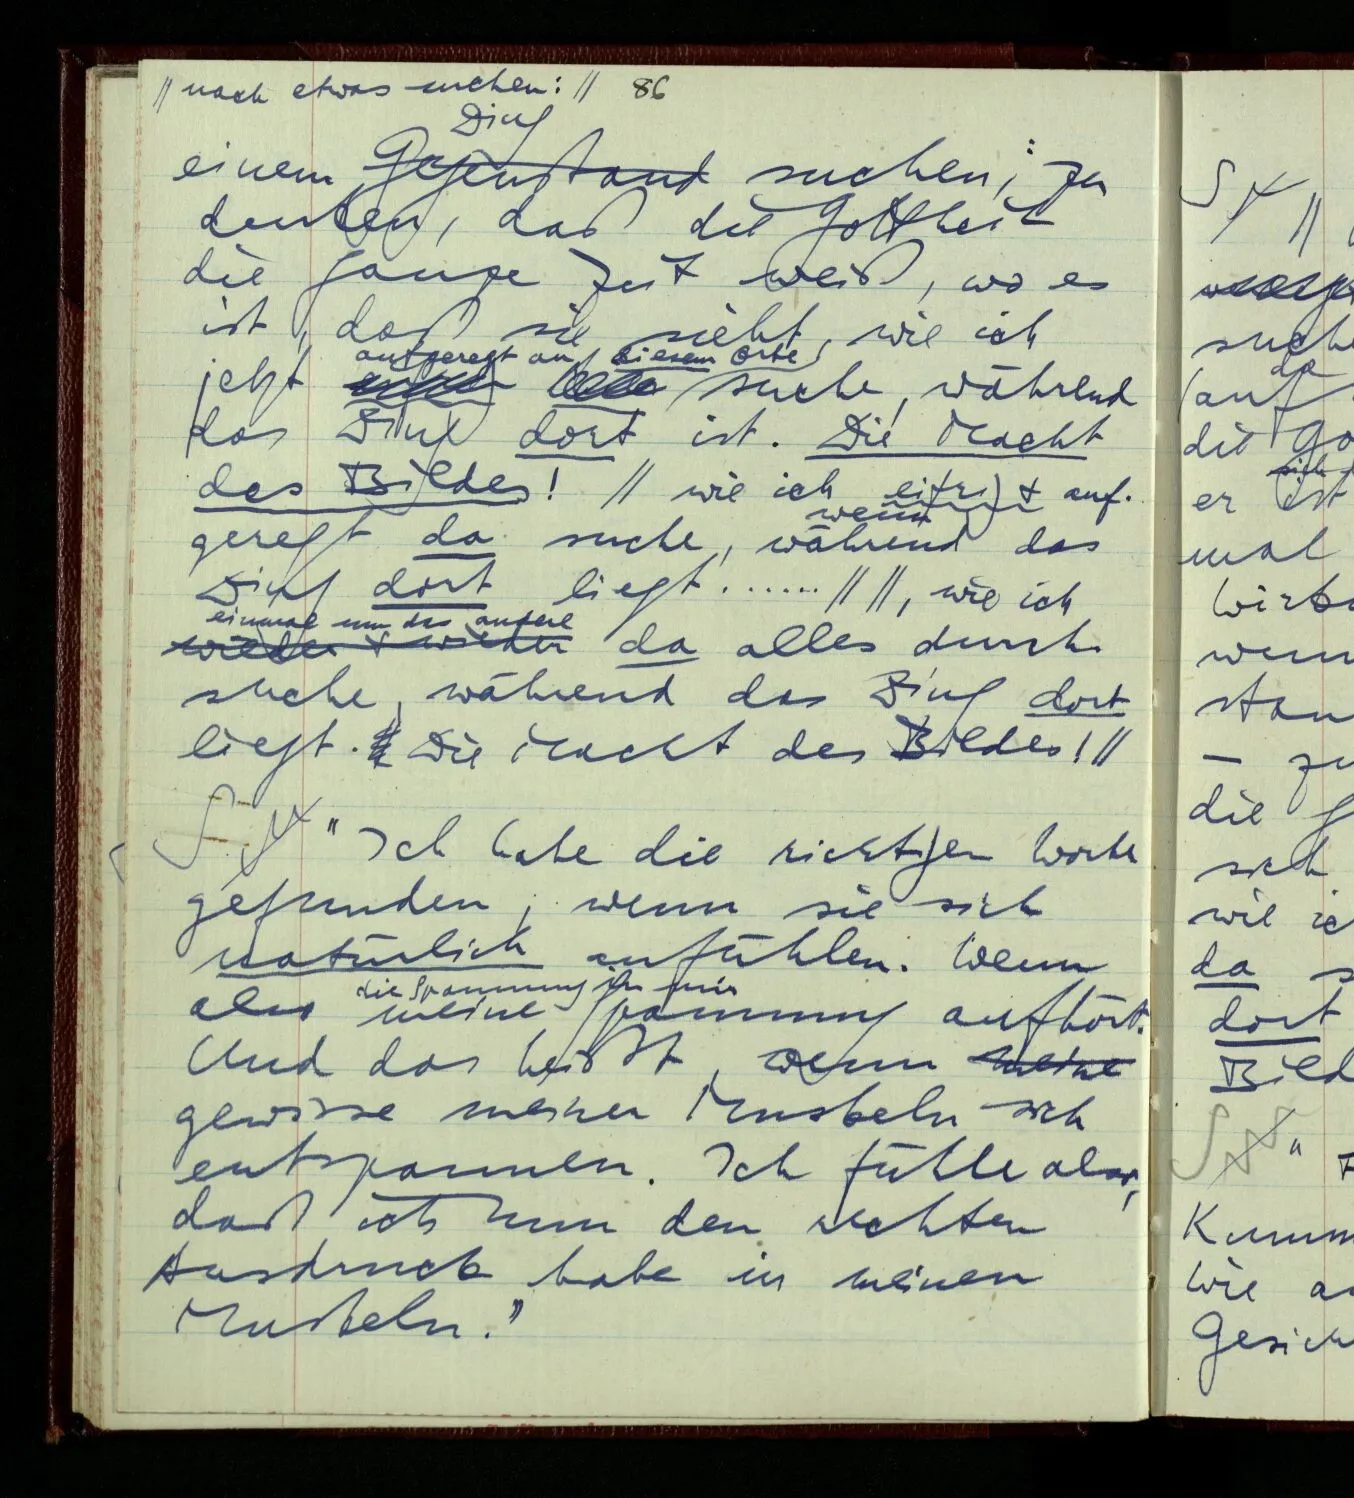 // nach etwas suchen: // 86
Ding
einem Gegenstand suchen; zu
denken, daß die Gottheit
die ganze Zeit weiß, wo es
ist, daß sie sieht, wie ich
aufgeregt an diesem Orte
jetzt suche, während
das Ding dort ist. Die Macht
des Bildes! // wie ich eifrig & auf-
wenn
geregt da suche, während das
Ding dort liegt ...... // //, wie ich
einmal um das andere
wieder & wieder da alles durch-
suche, während das Ding dort
liegt. Die Macht des Bildes! //
S "Ich habe die richtigen Worte
gefunden, wenn sie sich
natürlich anfühlen. Wenn
die Spannung in mir
also meine Spannung aufhört.
Und das heißt, wenn meine
gewisse meiner Muskeln sich
entspannen. Ich fühle also,
daß ich nun den rechten
Ausdruck habe in meinen
Muskeln."
S //
suche
da
(auf
die Go
sich
er ist
mal
wenn
stan
– zu
die g
sich
wie ic
da s
dort
Bild
S "
Kumm
wie an
Gesich